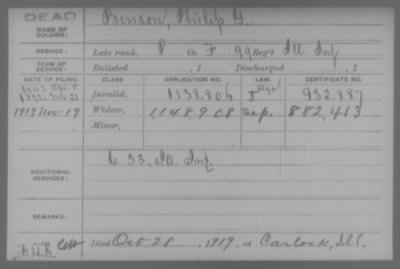 DEAD
NAME OF SOLDIER:
Benson, Philip G.
SERVICE:
Late rank, P Co. F, 99 Reg't Ill. Inf
TERM OF SERVICE:
Enlisted , 1 Discharged , 1
DATE OF FILING. CLASS. APPLICATION NO. LAW. CERTIFICATE NO.
1892 Nov 21 Invalid, 1138,806 932,887
1919 Nov-19 Widow, 1,148,908 882,413
Minor,
ADDITIONAL SERVICES:
C 33. Ill. Inf.
REMARKS:
Died Oct 28, 1919, at Carlock, Ill.